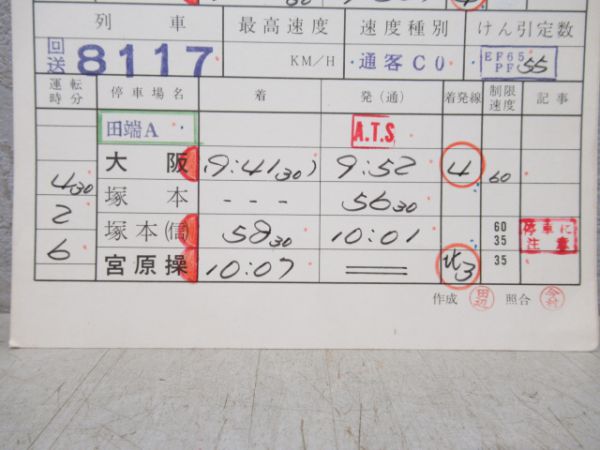 列車 最高速度 速度種別 けん引定数
回送 8117 KM/H 通客C0 EF65 PF 55
運転時分 停車場名 着 発(通) 着発線 制限速度 記事
田端A A.T.S
大阪 (9:41 30) 9:52 4 60
4 30 塚本 - - - 56 30
2 塚本(信) 58 30 10:01 60 35 停車に注意
6 宮原操 10:07 北3 35
作成 田辺 照合 今村